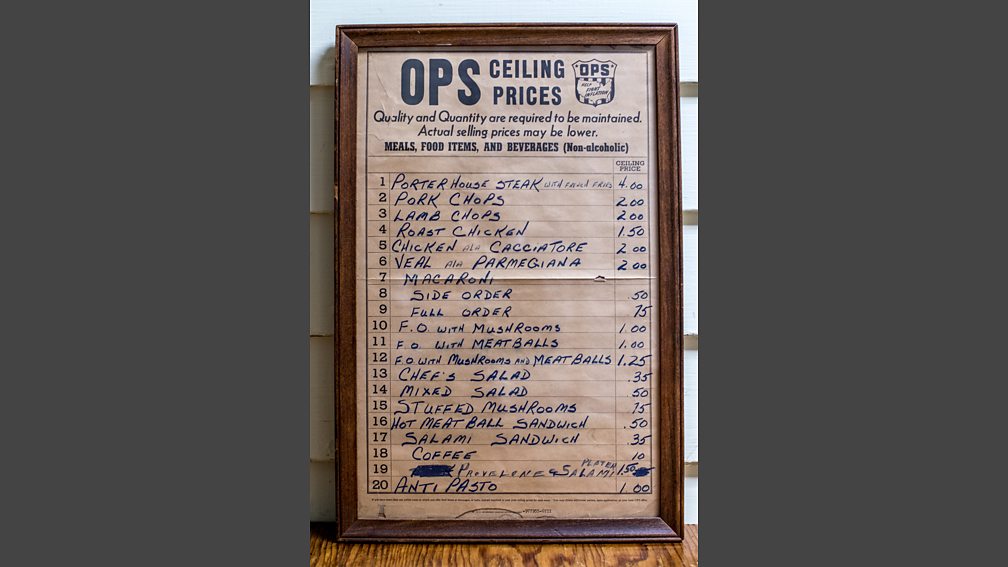 OPS CEILING PRICES
OPS
HELP FIGHT INFLATION
Quality and Quantity are required to be maintained.
Actual selling prices may be lower.
MEALS, FOOD ITEMS, AND BEVERAGES (Non-alcoholic)
CEILING PRICE
1 PORTER HOUSE STEAK WITH FRENCH FRIES 4.00
2 PORK CHOPS 2.00
3 LAMB CHOPS 2.00
4 ROAST CHICKEN 1.50
5 CHICKEN ALA CACCIATORE 2.00
6 VEAL ALA PARMEGIANA 2.00
7 MACARONI
8 SIDE ORDER .50
9 FULL ORDER 75
10 F.O. WITH MUSHROOMS 1.00
11 F.O. WITH MEATBALLS 1.00
12 F.O WITH MUSHROOMS AND MEATBALLS 1.25
13 CHEF'S SALAD .35
14 MIXED SALAD .50
15 STUFFED MUSHROOMS 75
16 HOT MEAT BALL SANDWICH .50
17 SALAMI SANDWICH .35
18 COFFEE 10
19 PROVELONE & SALAMI 1.50
20 ANTI PASTO 1.00